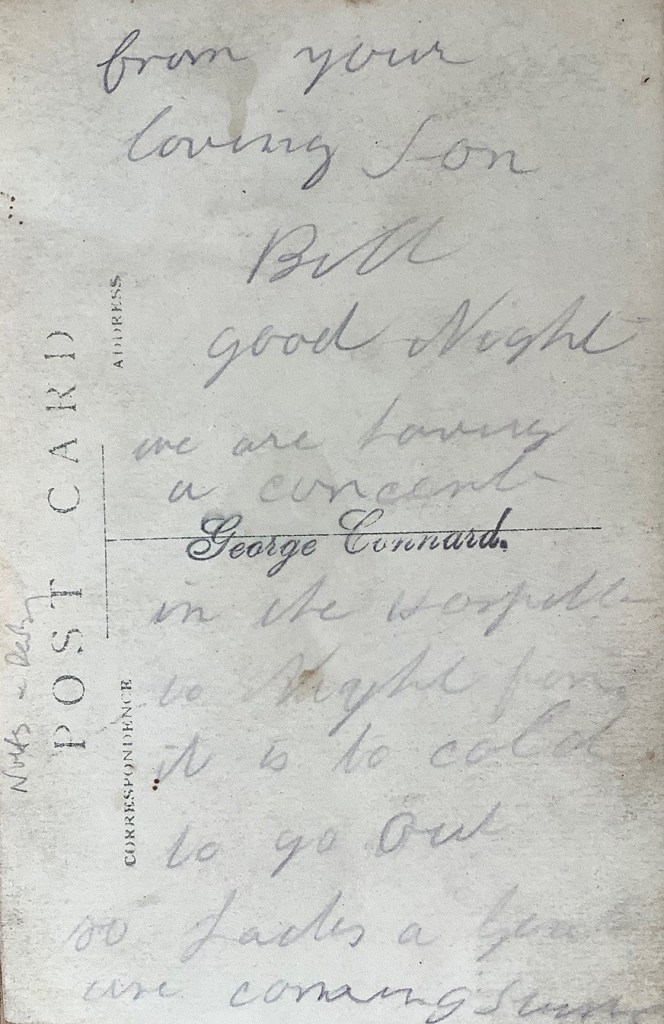 from your
loving Son
Bill
good Night
we are having
a concert
George Connard.
in the
to Night
it is to cold
to go out
so a
are coming
POST CARD
ADDRESS
CORRESPONDENCE
Notts Derby